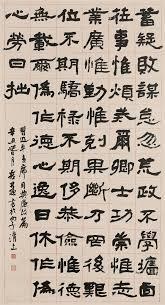 蓄疑敗謀怠忽荒政不學牆面
莅事惟煩戒爾卿士功崇惟志
業廣惟勤惟克果斷乃罔後艱
位不期驕祿不期侈恭儉惟德
無載爾偽作德心逸日休作偽
心勞日拙